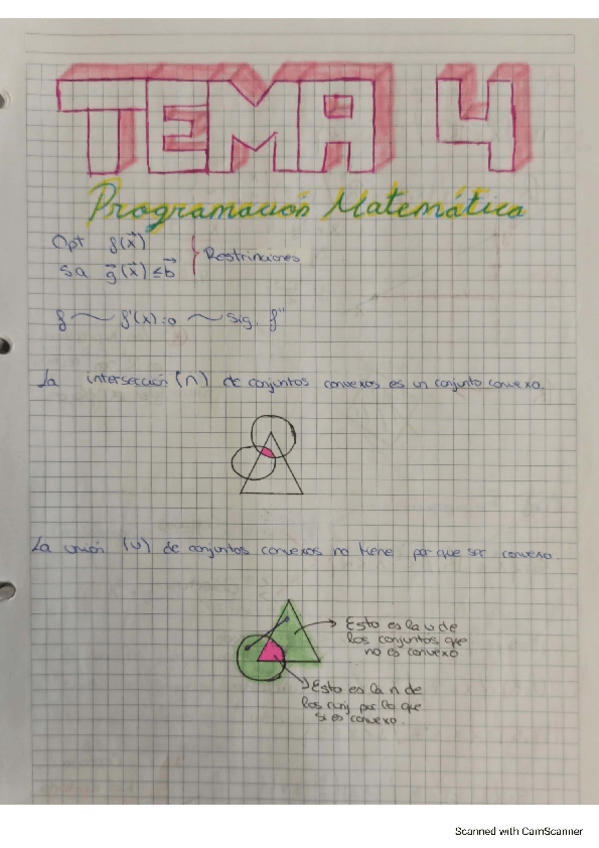 TEMA 4
Programación Matemática
Opt f(x⃗)
s.a g⃗(x⃗) ≤ b⃗ } Restricciones
f ~ f'(x)=0 ~ sig. f''
La intersección (∩) de conjuntos convexos es un conjunto convexo.
La unión (∪) de conjuntos convexos no tiene por que ser convexo.
Esto es la ∪ de
los conjuntos que
no es convexo
Esto es la ∩ de
los conj por lo que
si es convexo.
Scanned with CamScanner